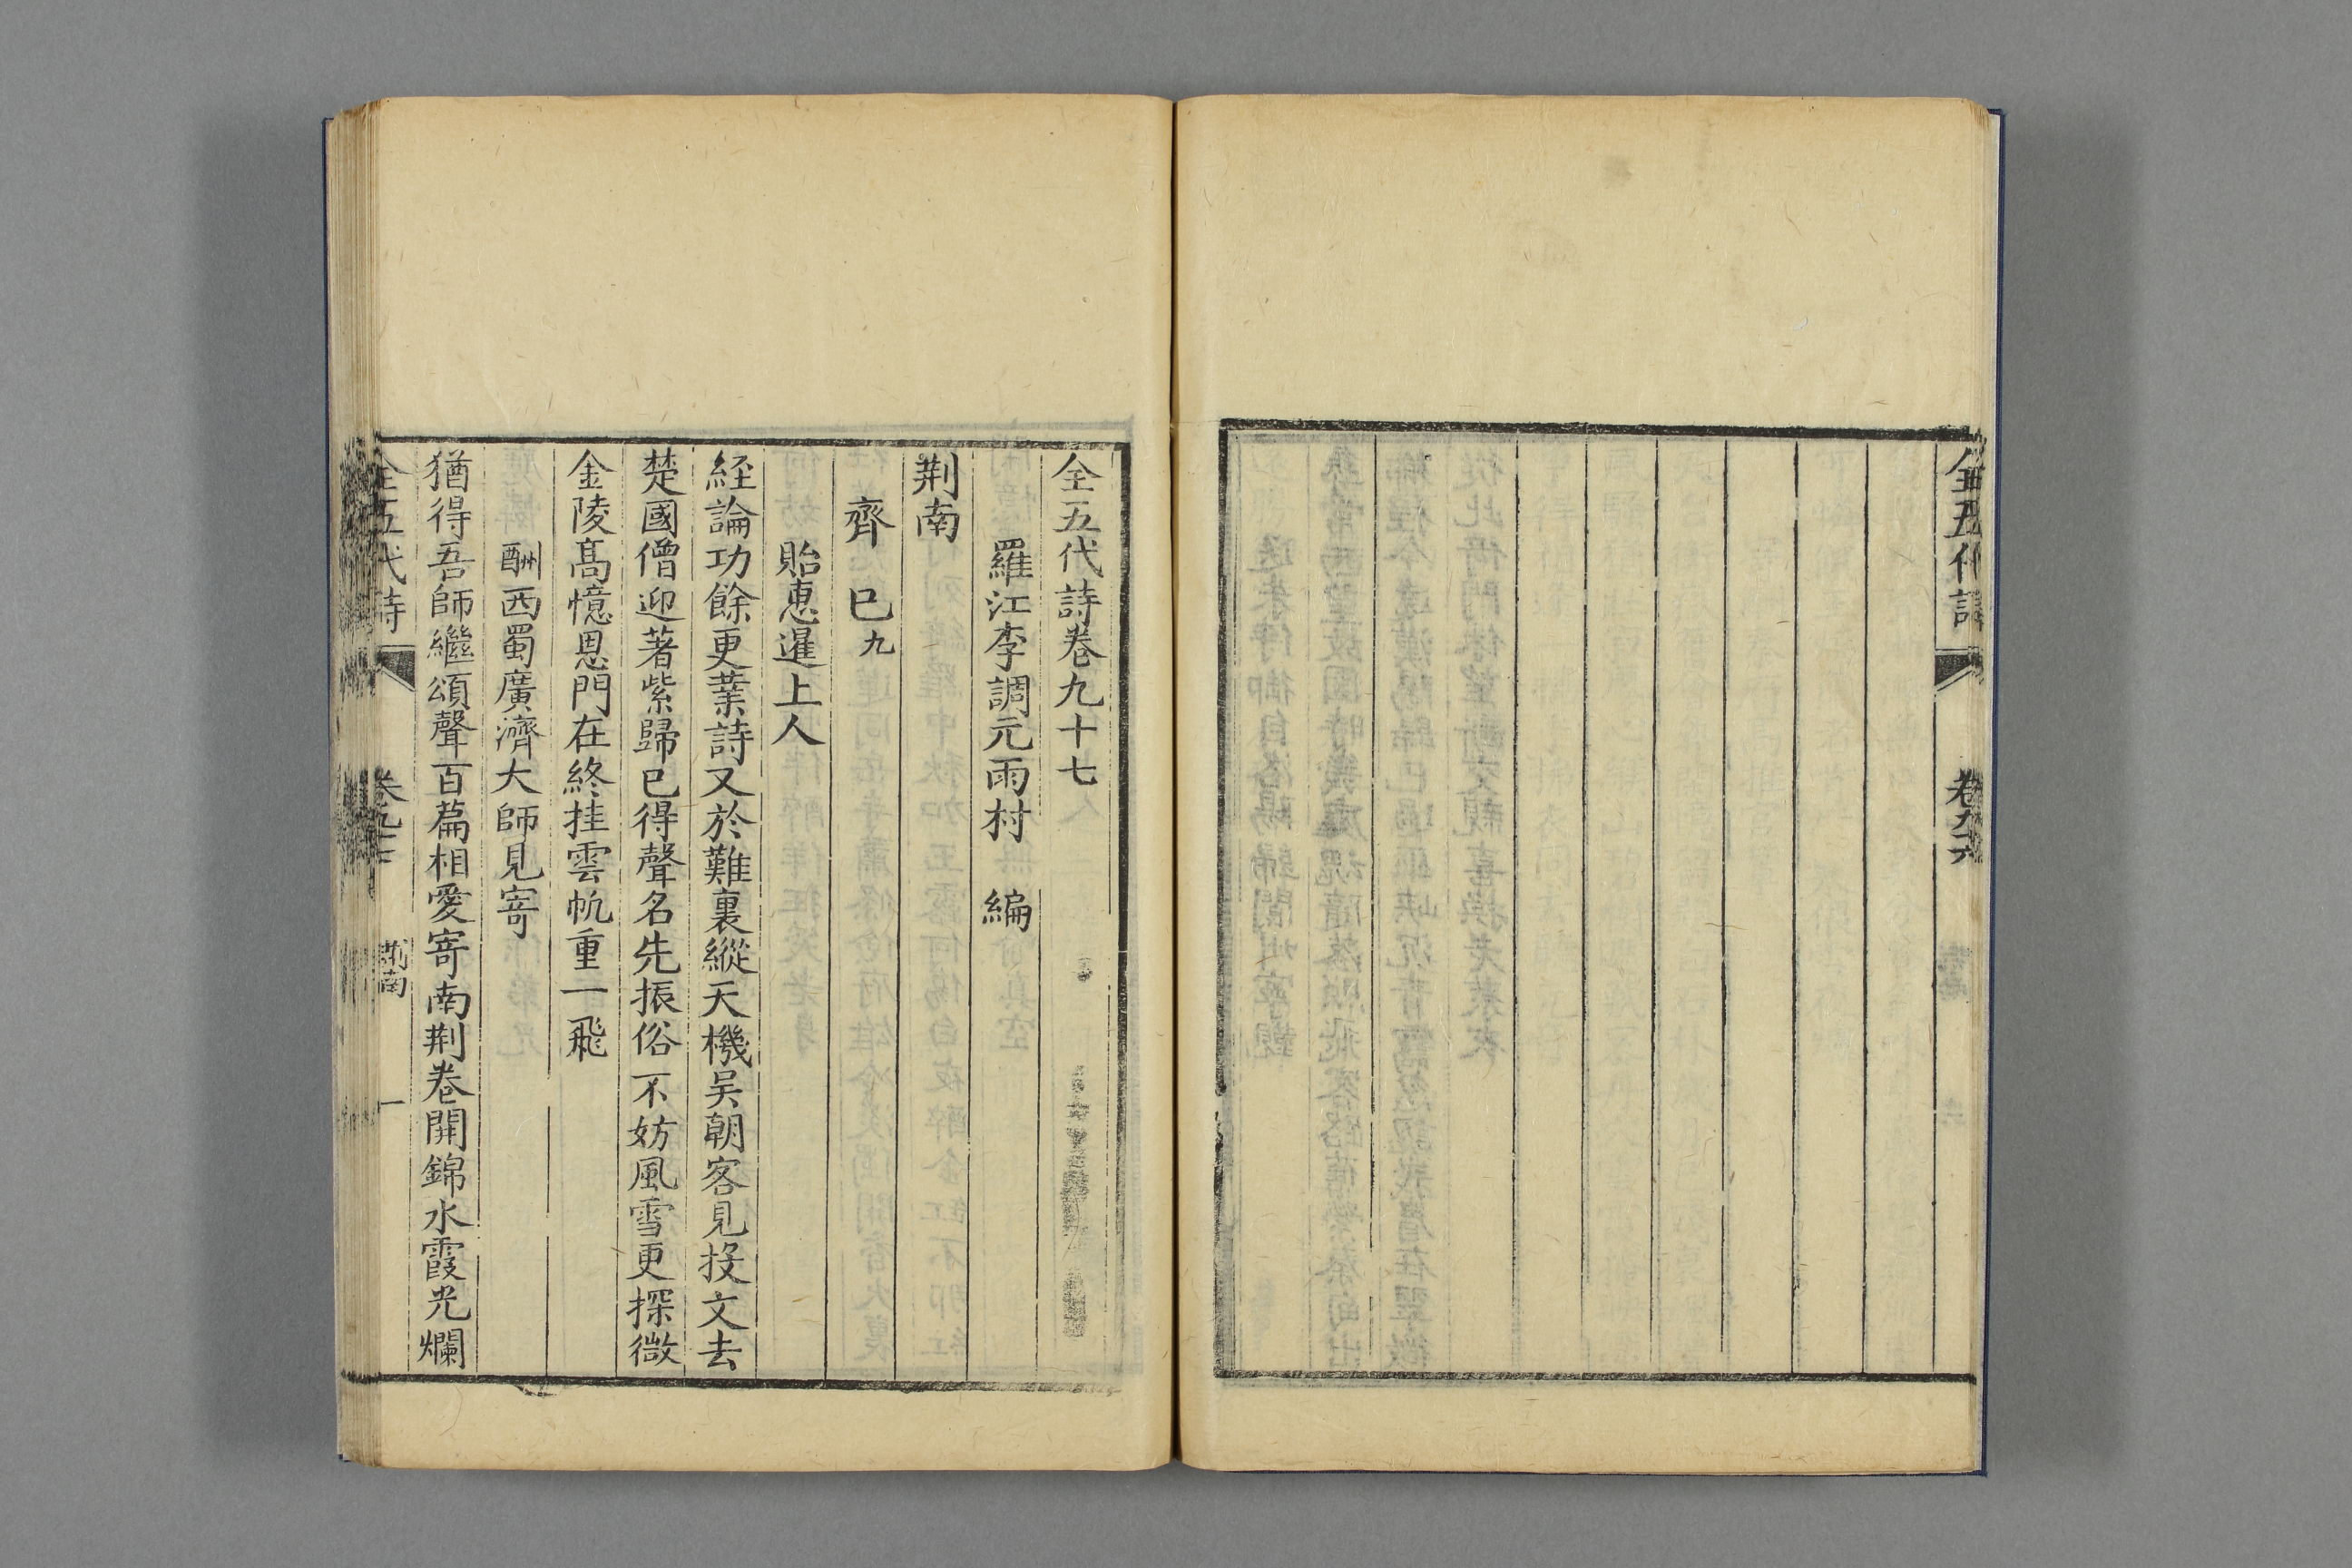 全五代詩
卷九十六
全五代詩卷九十七
羅江李調元雨村 編
荆南
齊 已九
貽惠暹上人
経論功餘更業詩又於難裏縱天機吴朝客見投文去
楚國僧迎著紫歸已得聲名先振俗不妨風雪更探微
金陵髙憶恩門在終挂雲帆重一飛
酬西蜀廣濟大師見寄
猶得吾師繼頌聲百篇相愛寄南荆卷開錦水霞光爛
全五代詩
卷九十七
荆南
一